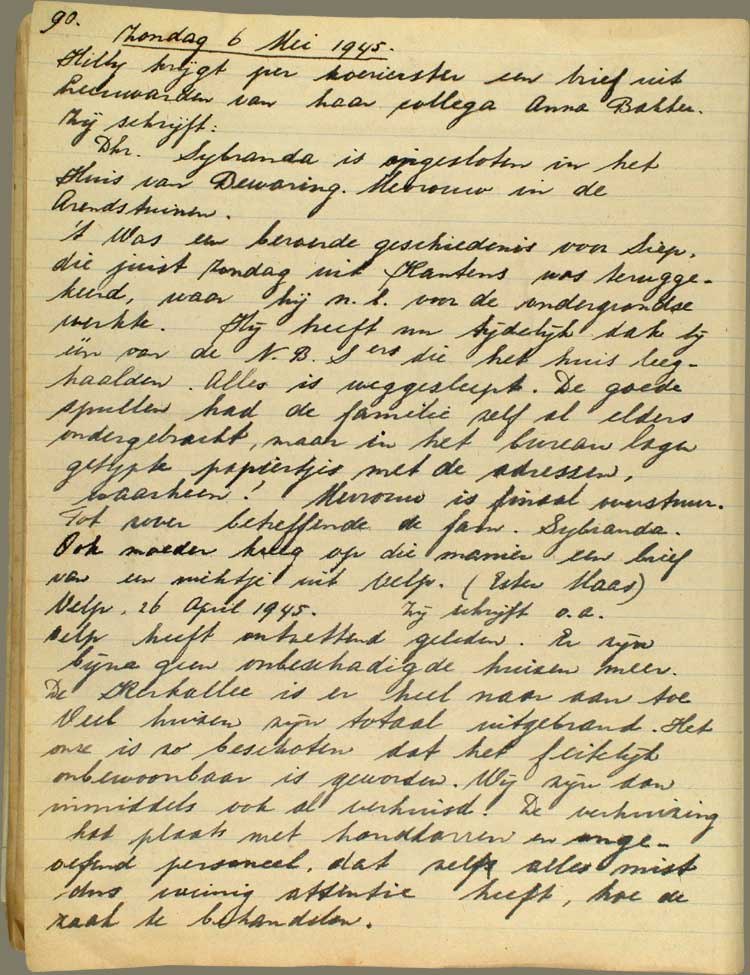 90.
Zondag 6 Mei 1945.
Hilly krijgt per koerierster een brief uit
Leeuwarden van haar collega Anna Bakker.
Zij schrijft:
Dhr. Sybranda is opgesloten in het
Huis van Bewaring. Mevrouw in de
Arendstuinen.
't Was een beroerde geschiedenis voor Siep,
die juist Zondag uit Kantens was terugge-
keerd, waar hij n.l. voor de ondergrondse
werkte. Hij heeft nu tijdelijk dak bij
één van de N.B.Sers die het huis leeg-
haalden. Alles is weggesleept. De goede
spullen had de familie zelf al elders
ondergebracht, maar in het bureau lagen
getypte papiertjes met de adressen,
waarheen! Mevrouw is finaal overstuur.
Tot zover betreffende de fam. Sybranda.
Ook moeder kreeg op die manier een brief
van een nichtje uit Velp. (Ester Maas)
Velp, 26 April 1945. Zij schrijft o.a.
Velp heeft ontzettend geleden. Er zijn
bijna geen onbeschadigde huizen meer.
De Kerkallee is er heel naar aan toe
Veel huizen zijn totaal uitgebrand. Het
onze is zo beschoten dat het feitelijk
onbewoonbaar is geworden. Wij zijn dan
inmiddels ook al verhuisd. De verhuizing
had plaats met handkarren en onge-
oefend personeel, dat zelf alles mist
dus weinig attentie heeft, hoe de
zaak te behandelen.